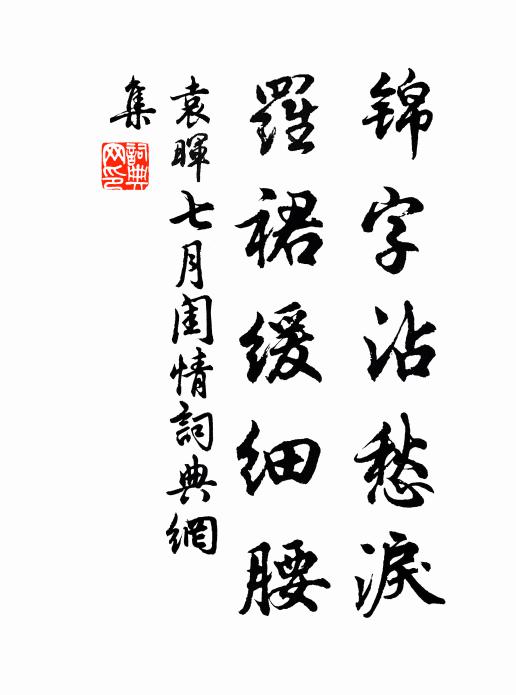 锦字沾愁淚
羅裙緩細腰
袁暉七月閨情詞典網
集
詞典網印